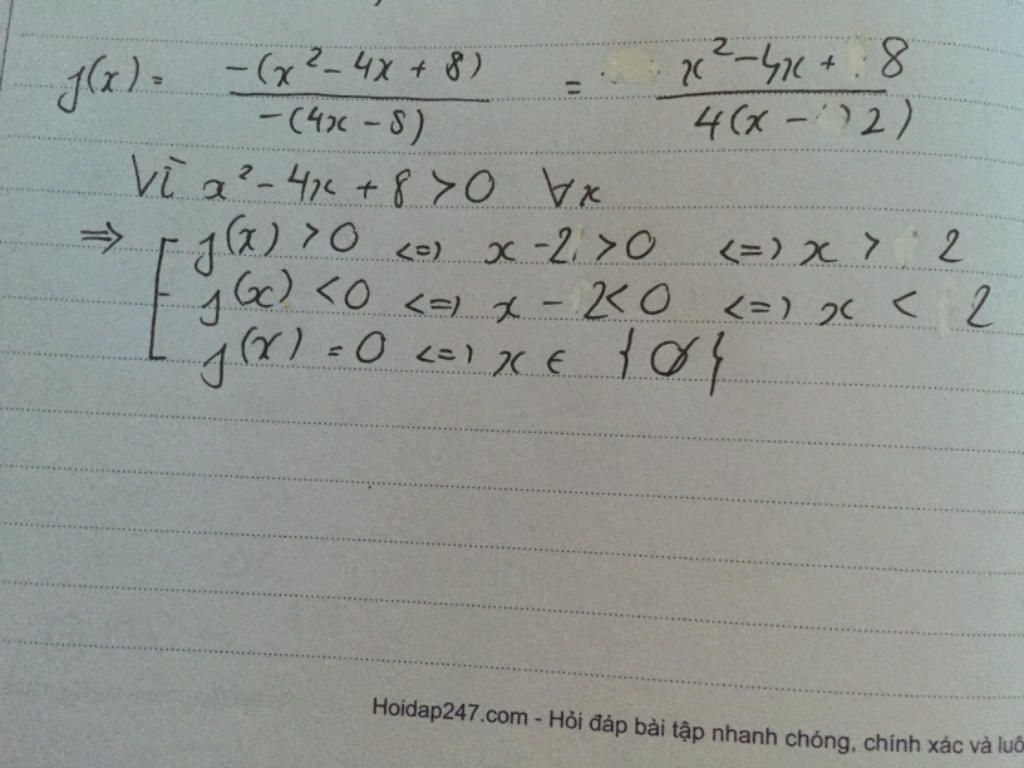 f(x) = -(x² - 4x + 8) / -(4x - 8) = x² - 4x + 8 / 4(x - 2)
Vì x² - 4x + 8 > 0 ∀x
⇒ [ f(x) > 0 <=> x - 2 > 0 <=> x > 2
f(x) < 0 <=> x - 2 < 0 <=> x < 2
f(x) = 0 <=> x ∈ {∅}
Hoidap247.com - Hỏi đáp bài tập nhanh chóng, chính xác và luô